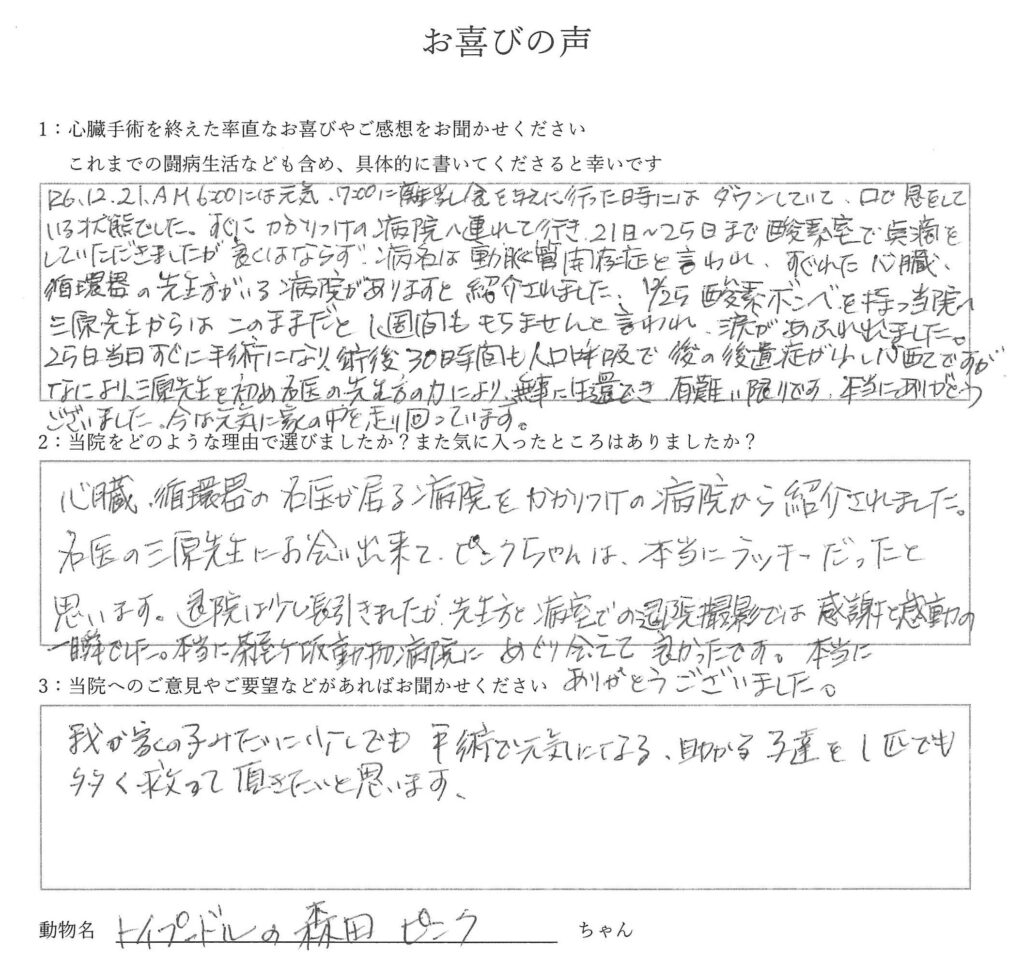 お喜びの声
1：心臓手術を終えた率直なお喜びやご感想をお聞かせください
これまでの闘病生活なども含め、具体的に書いてくださると幸いです
R6.12.21.AM6:00には元気、7:00に離乳食を与えに行った時にはダウンしていて、口で息をして
いる状態でした。すぐにかかりつけの病院へ連れて行き、21日〜25日まで酸素室で点滴を
していただきましたが良くはならず、病名は動脈管開存症と言われ、すぐれた心臓、
循環器の先生方がいる病院がありますと紹介されました、12/25酸素ボンベを持って当院へ
三原先生からはこのままだと1週間ももちませんと言われ、涙があふれ出ました。
25日当日すぐに手術になり、術後30時間も人口呼吸で後の後遺症が少し心配ですが
なにより、三原先生を初め名医の先生方の力により、無事に生還でき、有難い限りです、本当にありがとう
ございました、今は元気に家の中を走り回っています。
2：当院をどのような理由で選びましたか？また気に入ったところはありましたか？
心臓、循環器の名医が居る病院をかかりつけの病院から紹介されました。
名医の三原先生にお会い出来て、ピンクちゃんは、本当にラッキーだったと
思います。退院は少し長引きましたが、先生方と病室での退院撮影では感謝と感動の
一瞬でした。本当に茶屋ヶ坂動物病院にめぐり会えて良かったです。本当に
ありがとうございました。
3：当院へのご意見やご要望などがあればお聞かせください
我が家の子みたいに少しでも手術で元気になる、助かる子達を1匹でも
多く救って頂きたいと思います、
動物名 トイプードルの森田ピンク ちゃん